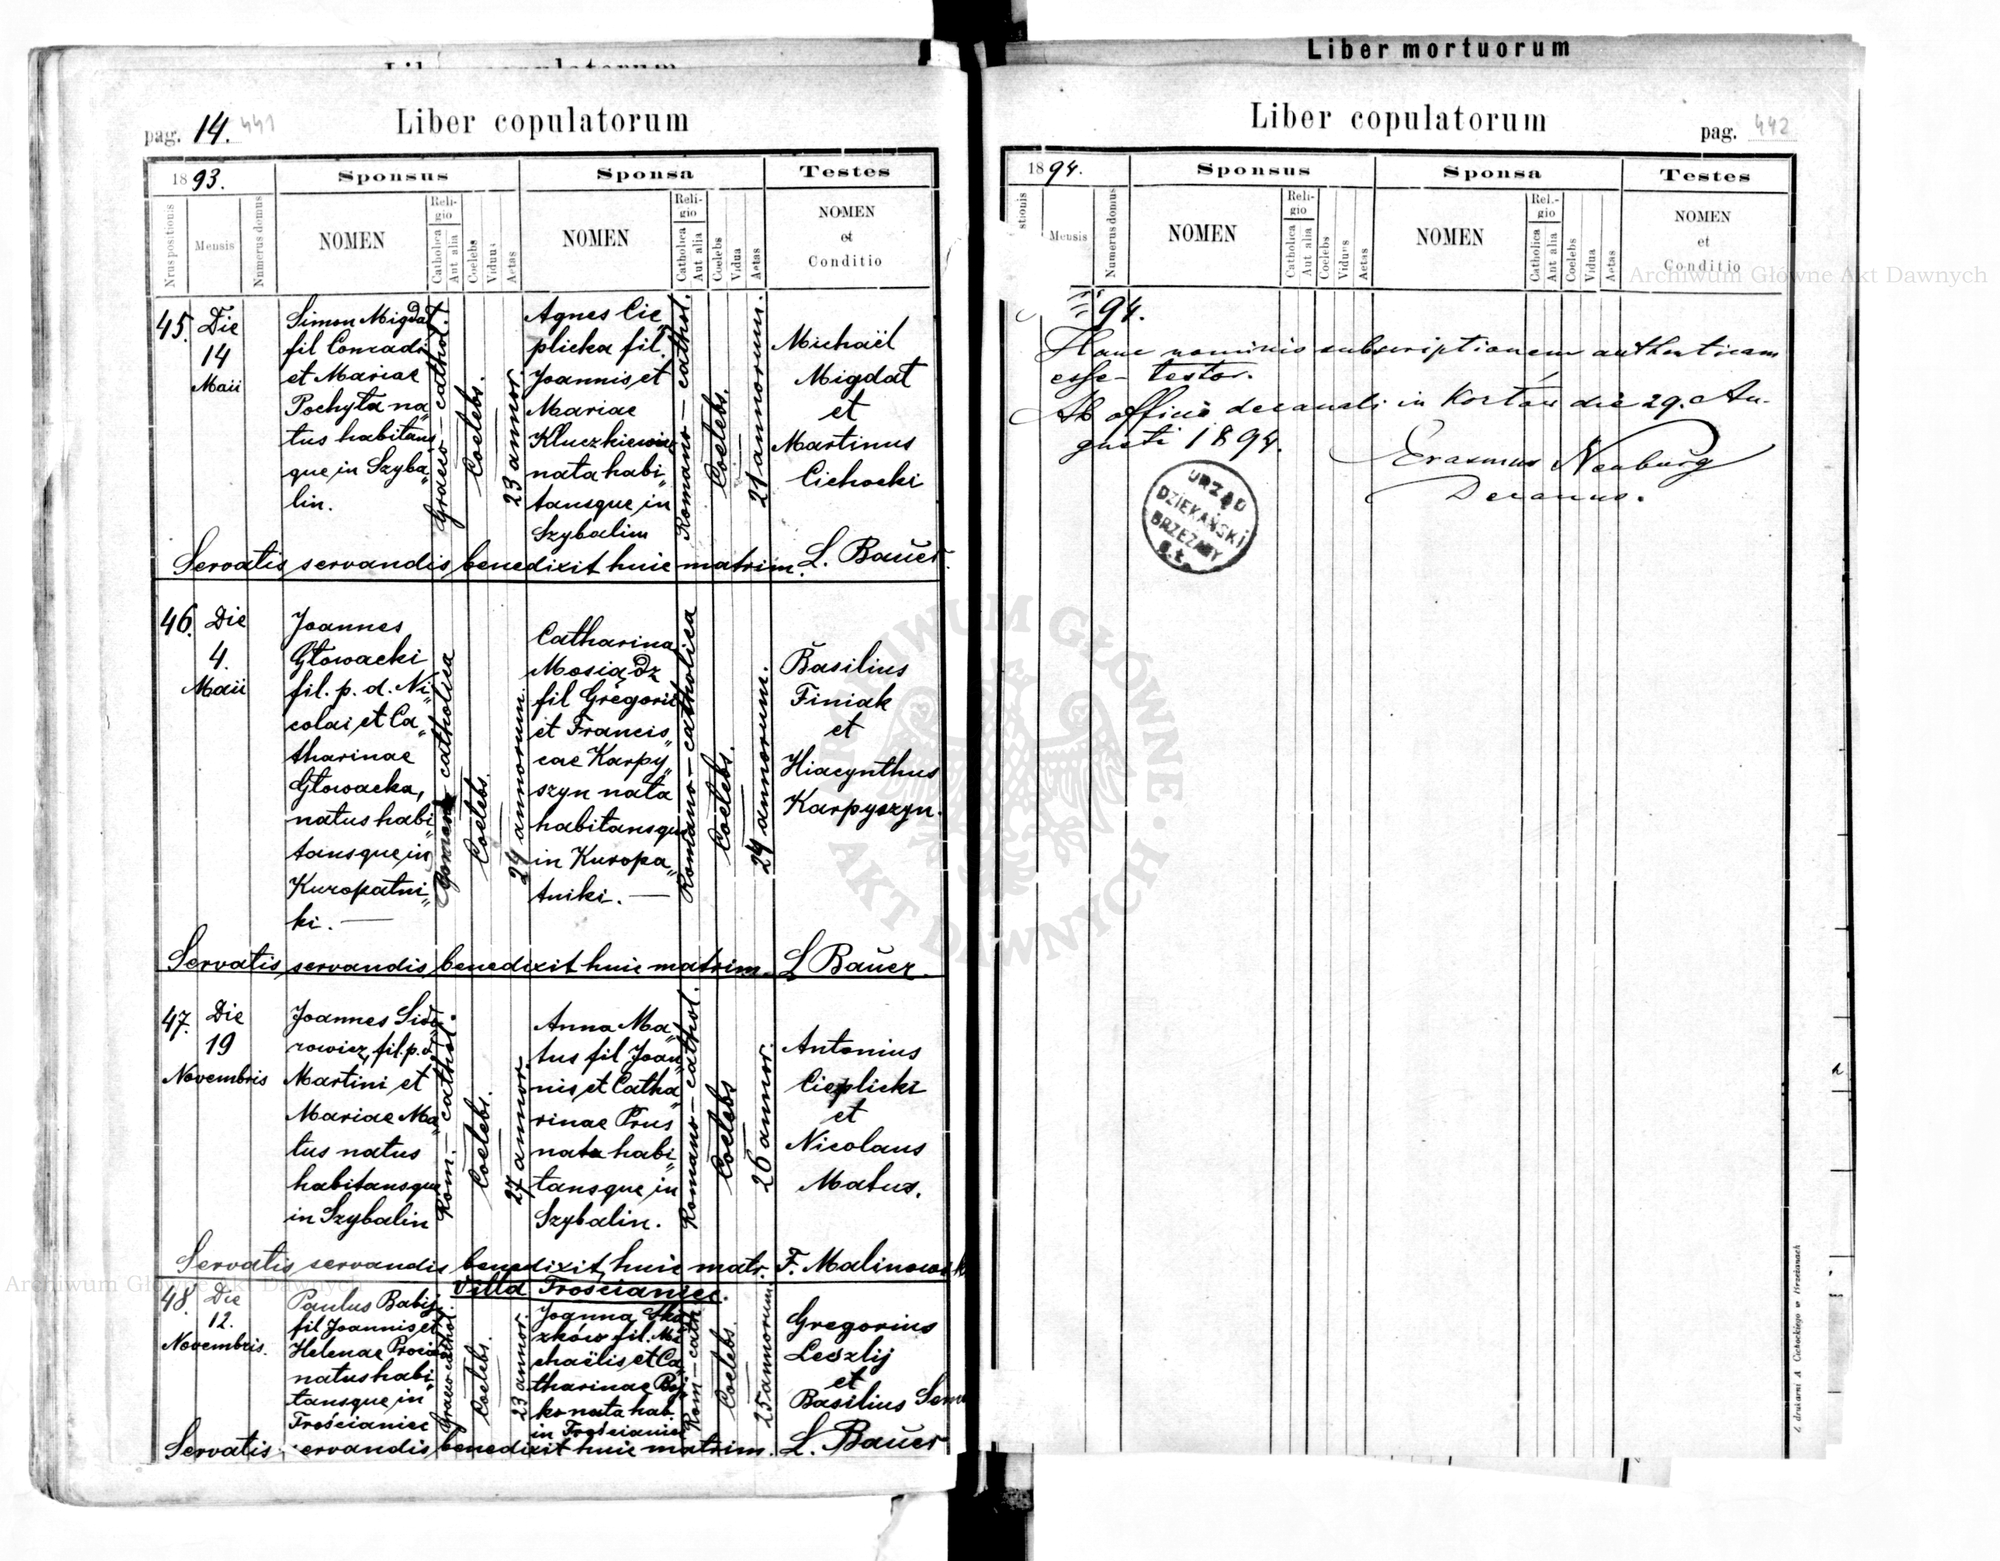 Liber copulatorum
pag. 14. 441
1893.
Sponsus
Sponsa
Testes
Nrus positionis
Mensis
Numerus domus
NOMEN
Religio
Catholica
Aut alia
Coelebs
Viduus
Aetas
NOMEN
Religio
Catholica
Aut alia
Coelebs
Vidua
Aetas
NOMEN
et
Conditio
45.
Die
14
Maii
Simon Migdał
fil Conradi
et Mariae
Pochyła na„
tus habitans„
que in Szyba„
lin.
Graeco-cathol.
Coelebs.
23 annor.
Agnes Cie
plicka fil.
Joannis et
Mariae
Kluczkiewicz
nata habi„
tansque in
Szybalin
Romano-cathol.
Coelebs.
21 annorum.
Michaël
Migdał
et
Martinus
Cichocki
Servatis servandis benedixit huic matrim. L. Bauer.
46.
Die
4.
Maii
Joannes
Głowacki
fil. p. d. Ni„
colai et Ca„
tharinae
Głowacka,
natus habi„
tansque in
Kuropatni„
ki.
catholica
Coelebs.
24 annorum.
Catharina
Mosiądz
fil Gregorii
et Francis„
cae Karpy„
szyn nata
habitansque
in Kuropa„
tniki.
Romano-catholica
Coelebs.
24 annorum.
Basilius
Finiak
et
Hiacynthus
Karpyszyn.
Servatis servandis benedixit huic matrim. L Bauer.
47.
Die
19
Novembris
Joannes Sido„
rowicz, fil. p. d.
Martini et
Mariae Ma„
tus natus
habitansque
in Szybalin
Rom.-cathol.
Coelebs.
27 annor.
Anna Ma„
tus fil Joan„
nis et Catha„
rinae Prus
nata habi„
tansque in
Szybalin.
Romano-cathol.
Coelebs
26 annor.
Antonius
Cieplicki
et
Nicolaus
Matus.
Servatis servandis benedixit huic matr. F. Malinowsk
Villa Trościaniec.
48.
Die
12.
Novembris.
Paulus Babij
fil Joannis et
Helenae
natus habi„
tansque in
Trościaniec
Graeco-cathol.
Coelebs.
23 annor.
Joanna
zków fil. Mi„
chaëlis et Ca„
tharinae Boj„
ko nata hab.
in Trościaniec
Rom.-cath.
Coelebs.
25 annorum.
Gregorius
Leszlij
et
Basilius
Servatis servandis benedixit huic matrim. L. Bauer
Liber mortuorum
Liber copulatorum
pag. 442
1894.
Sponsus
Sponsa
Testes
Mensis
Numerus domus
NOMEN
Religio
Catholica
Aut alia
Coelebs
Viduus
Aetas
NOMEN
Religio
Catholica
Aut alia
Coelebs
Vidua
Aetas
NOMEN
et
Conditio
94.
Hanc nominis subscriptionem authenticam
esse testor.
Ab officio decanali in Kortów die 29. Au-
gusti 1894.
Erasmus Neuburg
Decanus.
URZĄD
DZIEKAŃSKI
BRZEŻANY
Z drukarni A Cichockiego w Brzeżanach
Archiwum Główne Akt Dawnych
Archiwum Główne Akt Dawnych
ARCHIWUM GŁÓWNE AKT DAWNYCH